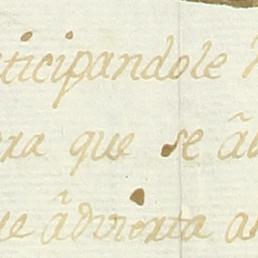 ticipandole
era que se
ue âdvierta